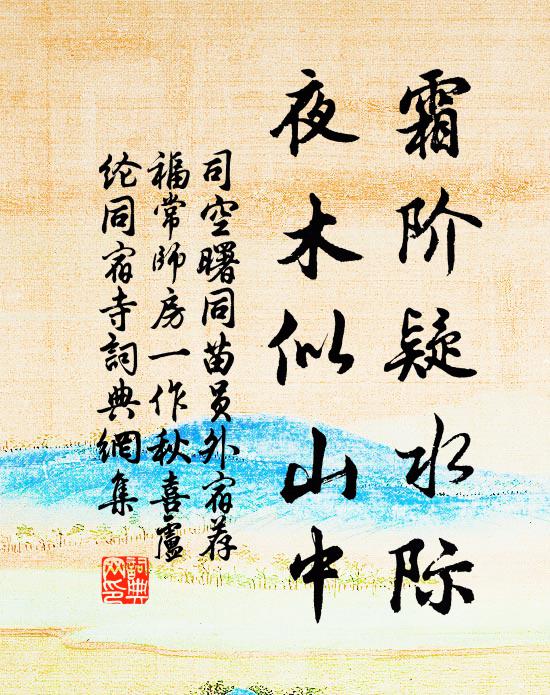 霜阶疑水际
夜木似山中
司空曙同苗员外宿荐
福常师房一作秋喜盧
纶同宿寺詞典網集
詞典网印